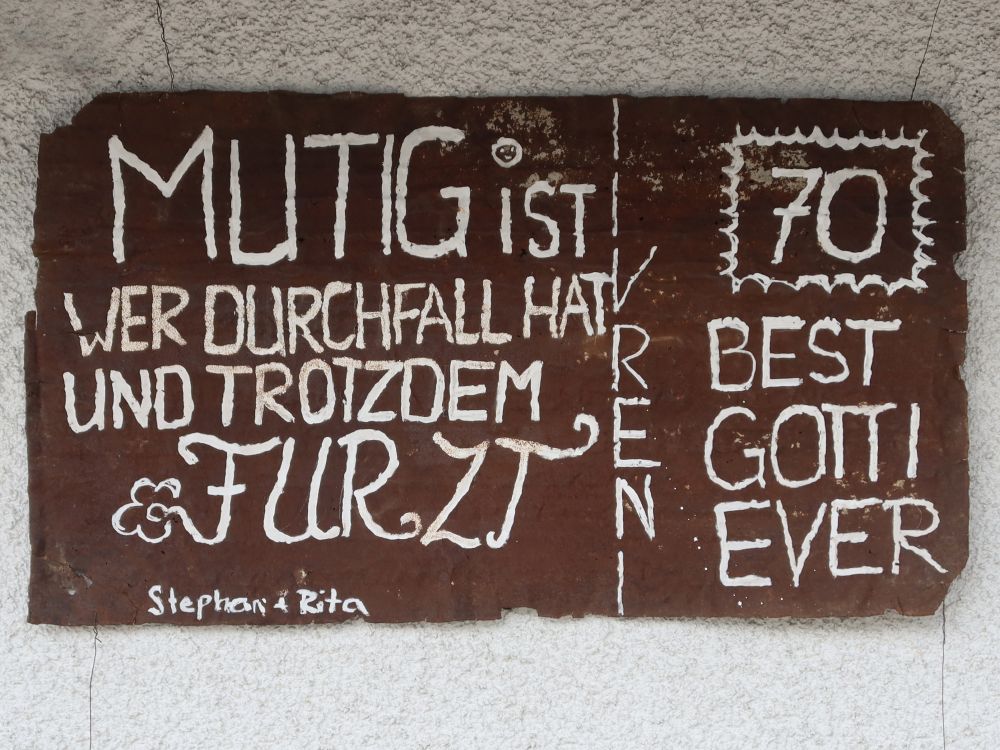 MUTIG iST
WER DURCHFALL HAT
UND TROTZDEM
FURZT
Stephan + Rita
VREN
70
BEST
GOTTI
EVER